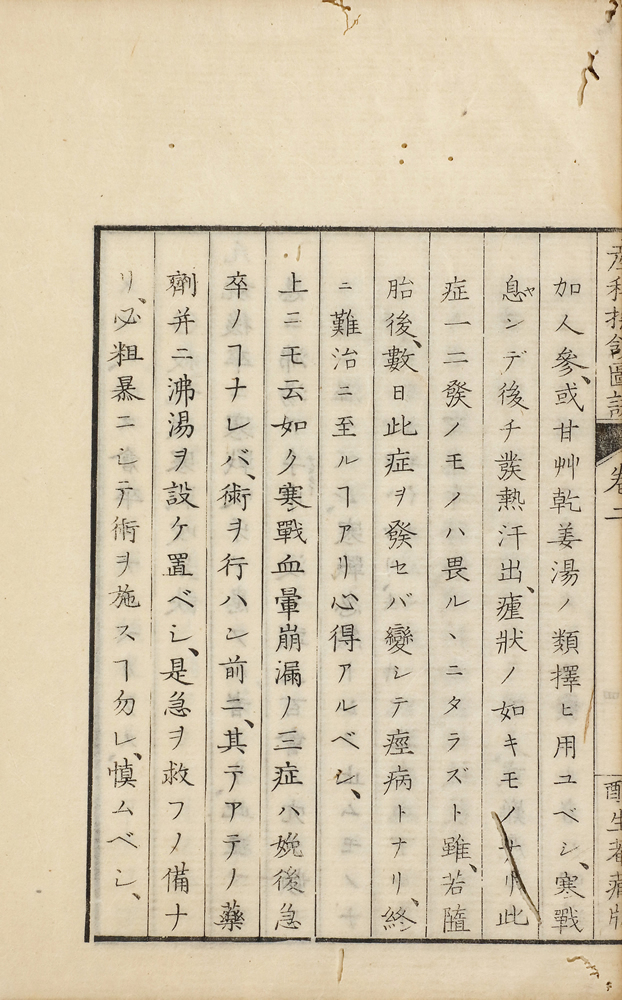 加人參、或甘艸乾姜湯ノ類擇ヒ用ユベシ、寒戰
息ンデ後チ發熱汗出、瘧狀ノ如キモノナリ此
ヤ
症一二發ノモノハ畏ルヽニタラズト雖、若隨
胎後、數日此症ヲ發セバ變シテ痙病トナリ、終
ニ難治ニ至ルヿアリ心得アルベシ、
上ニモ云如ク寒戰血暈崩漏ノ三症ハ娩後急
卒ノヿナレバ、術ヲ行ハン前ニ、其テアテノ藥
劑并ニ沸湯ヲ設ケ置ベシ、是急ヲ救フノ備ナ
リ、必粗暴ニシテ術ヲ施スヿ勿レ、慎ムベシ、
卷二